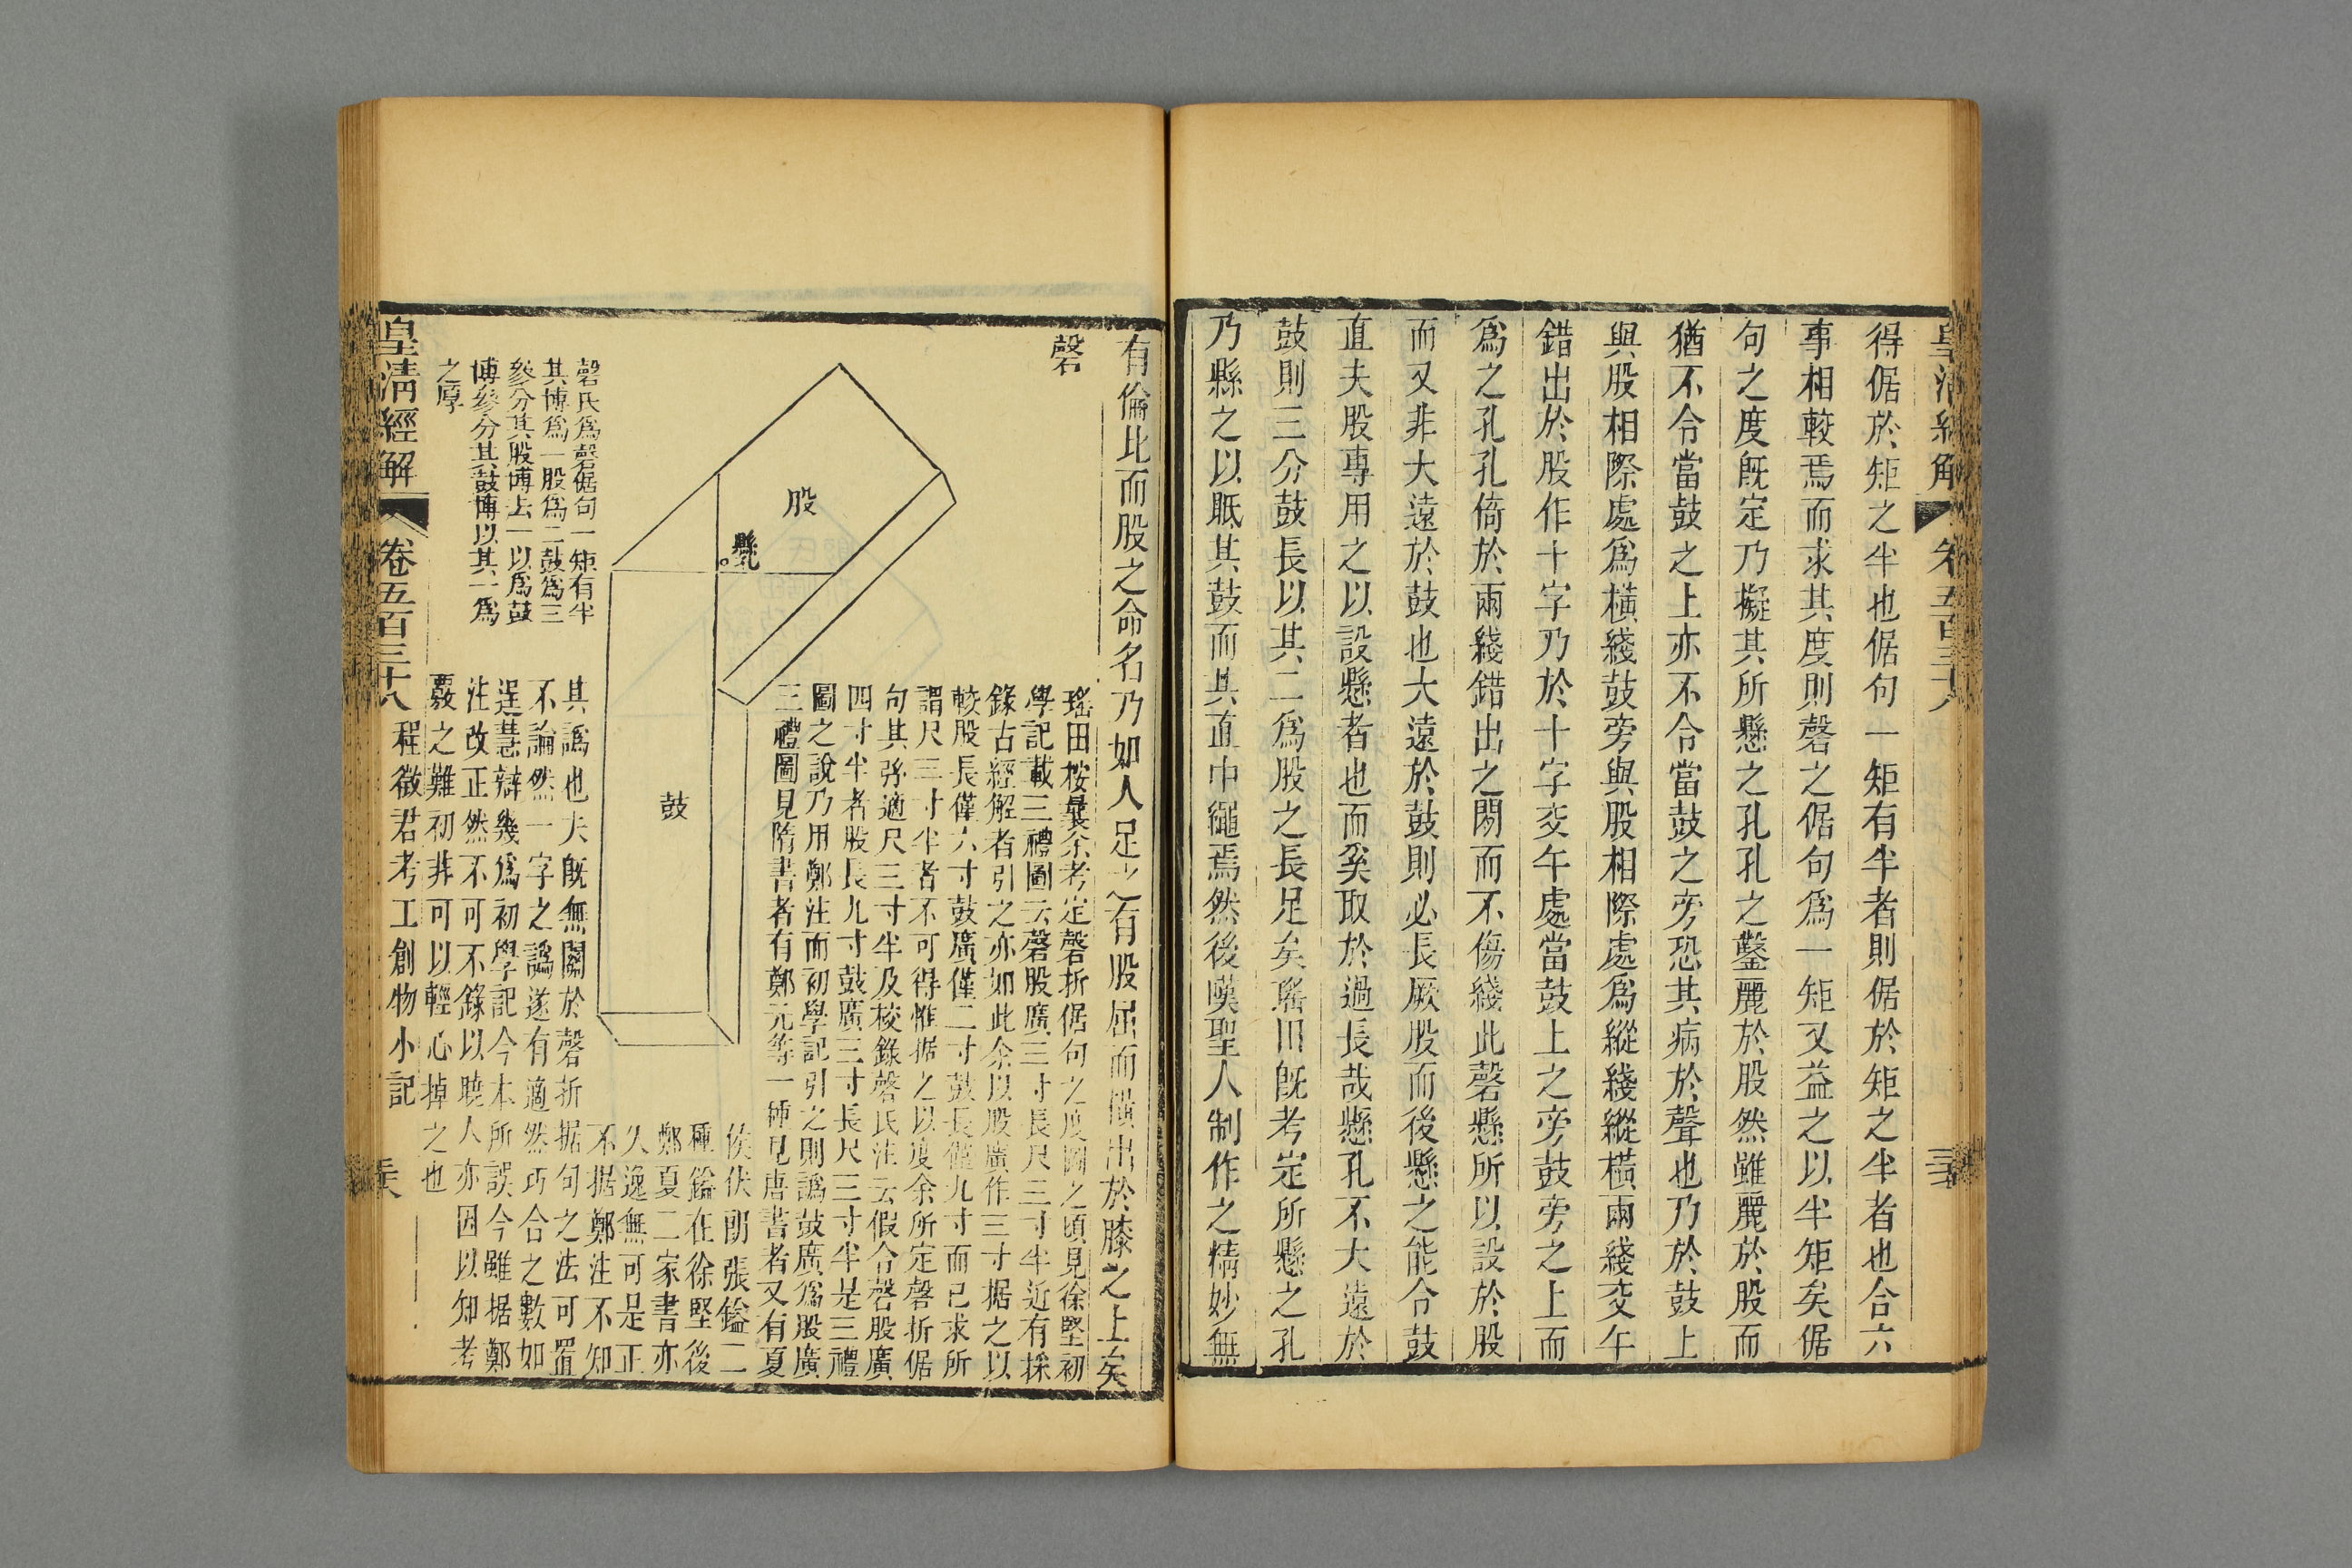 得倨於矩之半也倨句一矩有半者則倨於矩之半者也合六
事相較焉而求其度則磬之倨句爲一矩又益之以半矩矣倨
句之度既定乃擬其所懸之孔孔之鑿麗於股然雖麗於股而
猶不令當鼓之上亦不令當鼓之旁恐其病於聲也乃於鼓上
與股相際處爲橫綫鼓旁與股相際處爲縱綫縱橫兩綫交午
錯出於股作十字乃於十字交午處當鼓上之旁鼓旁之上而
爲之孔孔倚於兩綫錯出之閒而不傷綫此磬懸所以設於股
而又非大遠於鼓也大遠於鼓則必長厥股而後懸之能合鼓
直夫股專用之以設懸者也而奚取於過長哉懸孔不大遠於
鼓則三分鼓長以其二爲股之長足矣瑤田既考定所懸之孔
乃縣之以眂其鼓而其直中繩焉然後嘆聖人制作之精妙無
有倫比而股之命名乃如人足之有股屈而橫出於膝之上矣
磬
股
懸孔
鼓
瑤田按曩余考定磬折倨句之度圖之頃見徐堅初
學記載三禮圖云磬股廣三寸長尺三寸半近有採
錄古經解者引之亦如此余以股廣作三寸据之以
較股長僅六寸鼓廣僅二寸鼓長僅九寸而已求所
謂尺三寸半者不可得惟据之以度余所定磬折倨
句其弦適尺三寸半及校錄磬氏注云假令磬股廣
四寸半者股長九寸鼓廣三寸長尺三寸半是三禮
圖之說乃用鄭注而初學記引之則譌鼓廣爲股廣
三禮圖見隋書者有鄭元等一種見唐書者又有夏
侯伏朗張鎰二
種鎰在徐堅後
鄭夏二家書亦
久逸無可是正
不据鄭注不知
磬氏爲磬倨句一矩有半
其博爲一股爲二鼓爲三
參分其股博去一以爲鼓
博參分其鼓博以其一爲
之厚
其譌也夫既無關於磬折据句之法可置
不論然一字之譌遂有適然巧合之數如
逞慧辯幾爲初學記今本所誤今雖据鄭
注改正然不可不錄以曉人亦因以知考
覈之難初非可以輕心掉之也
皇清經解
卷五百三十八
程徵君考工創物小記